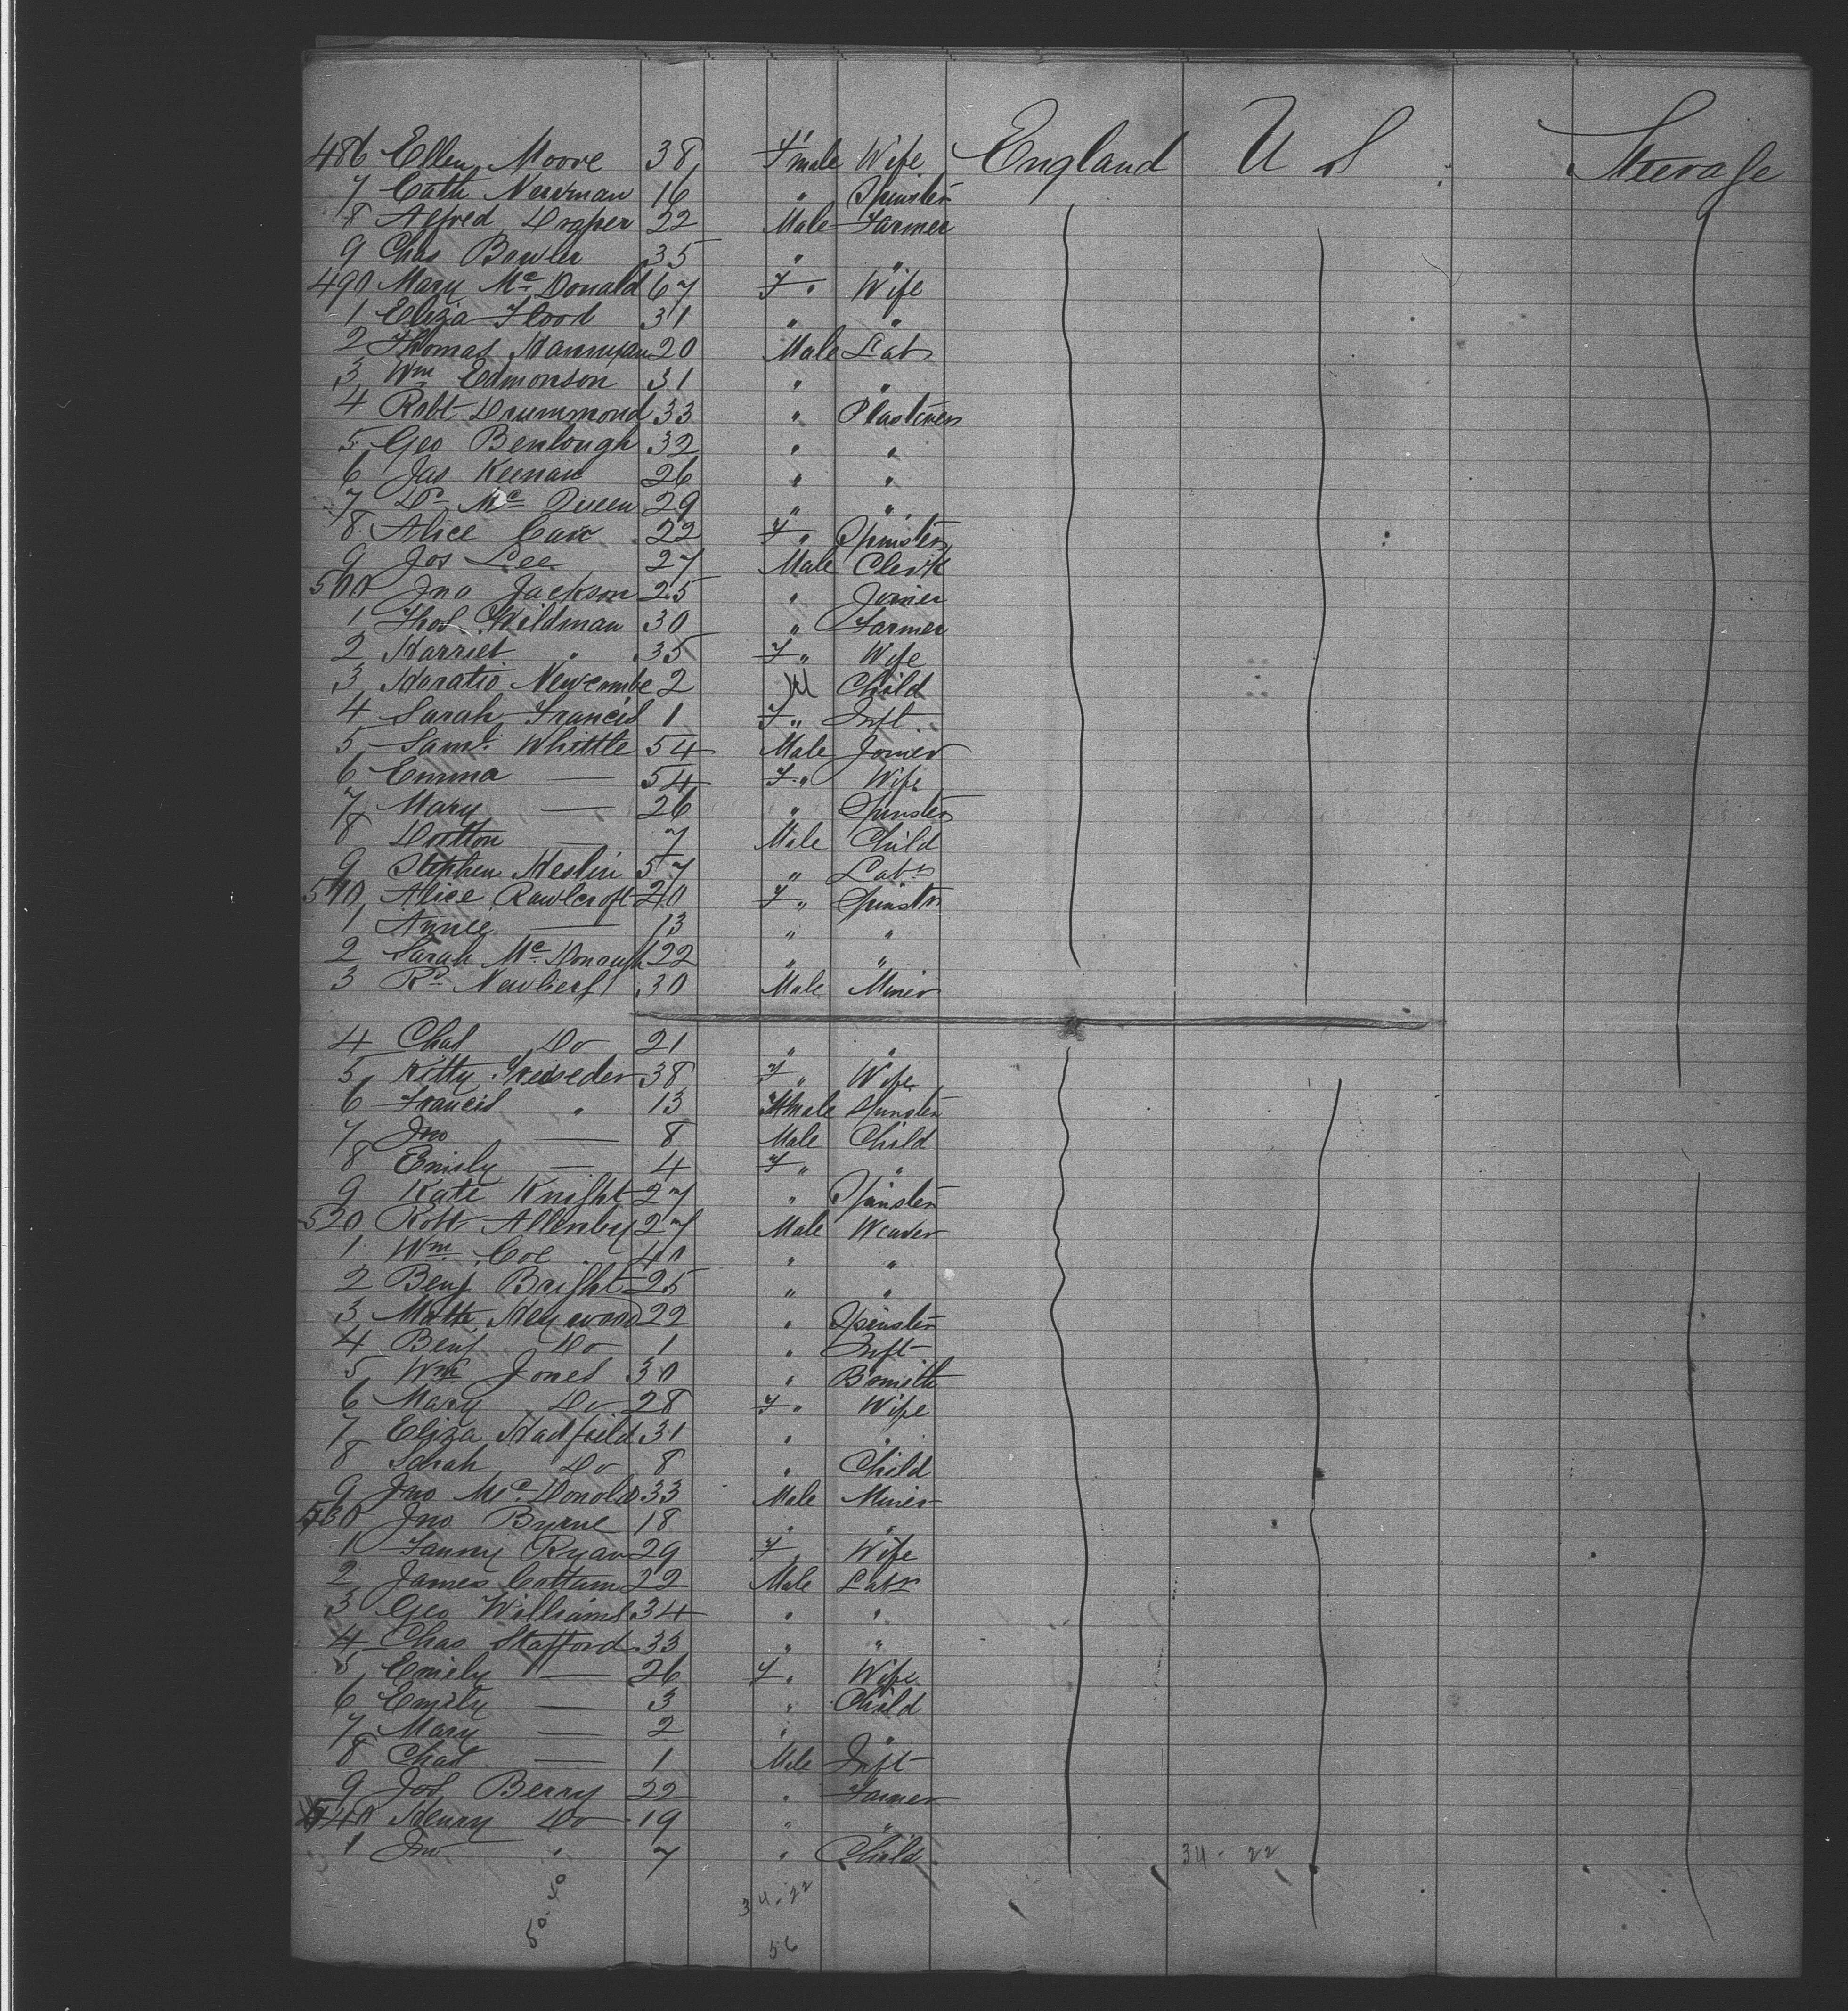 486 Ellen Moore 38 F'male Wife England U S Steerage
7 Cath Newman 16 " Spinster
8 Alfred Draper 22 Male Farmer
9 Chas Bowler 35 " "
490 Mary Mc Donald 67 F " Wife
1 Eliza Flood 31 " "
2 Thomas 20 Male Lab
3 Wm Edmonson 31 " "
4 Robt Drummond 33 " Plasterer
5 Geo Benlough 32 " "
6 Jas Keenan 26 " "
7 Mc Queen 29 " "
8 Alice 22 F " Spinster
9 Jos Lee 27 Male Clerk
500 Jno Jackson 25 " Joiner
1 Thos Wildman 30 " Farmer
2 Harriet " 35 F " Wife
3 Horatio Newcombe 2 M Child
4 Sarah Francis 1 F " Inft
5 Saml Whittle 54 Male Joiner
6 Emma — 54 F " Wife
7 Mary — 26 " Spinster
8 Dotton — 7 Male Child
9 Stephen Heslin 57 " Labr
510 Alice Rawlcroft 20 F " Spinstr
1 Annie — 13 " "
2 Sarah Mc Donough 22 " "
3 Rd 30 Male Miner
4 Chas Do 21 " "
5 Kitty 38 F " Wife
6 Francis " 13 Female Spinster
7 Jno — 8 Male Child
8 Emily — 4 F " "
9 Kate Knight 27 " Spinster
520 Robt Allenby 27 Male Weaver
1 Wm Coe 40 " "
2 Benj Bright 25 " "
3 Heywood 22 " Spinster
4 Benj Do 1 " Inft
5 Wm Jones 30 " Bsmith
6 Mary Do 28 F " Wife
7 Eliza Hadfield 31 " "
8 Sarah Do 8 " Child
9 Jno Mc Donold 33 Male Miner
530 Jno Byrne 18 " "
1 Fanny Ryan 29 F Wife
2 James Cottam 22 Male Labr
3 Geo Williams 34 " "
4 Chas Stafford 33 " "
5 Emily — 26 F " Wife
6 Emily — 3 " Child
7 Mary — 2 " "
8 Chas — 1 Male Inft
9 Jos Berry 22 " Farmer
540 Henry Do 19 " "
1 Jno " 7 " Child 34 - 22
50.40 34-22
56